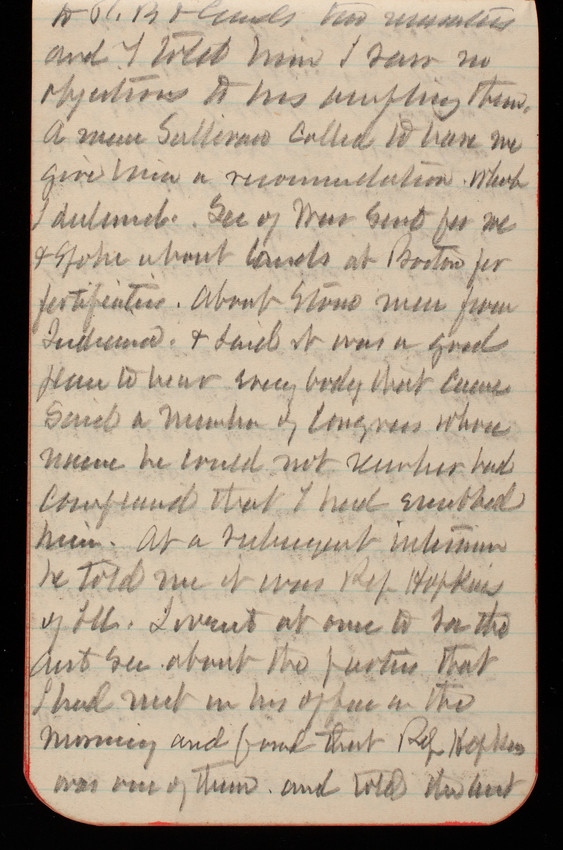 and I told him I saw no
objections to his accepting them.
A man Sullivan called to have me
give him a recommendation. which
I declined. Sec of War Sent for me
& Spoke about lands at Boston for
fortification. About Stone men from
Indiana. & Said it was a good
plan to hear every body that came
Said a member of Congress whose
name he could not remember had
complained that I had snubbed
him. At a subsequent interview
he told me it was Rep Hopkins
of Ill. I went at once to see the
Asst Sec about the parties that
I had met in his office in the
morning and found that Rep Hopkins
was one of them. and told the Asst